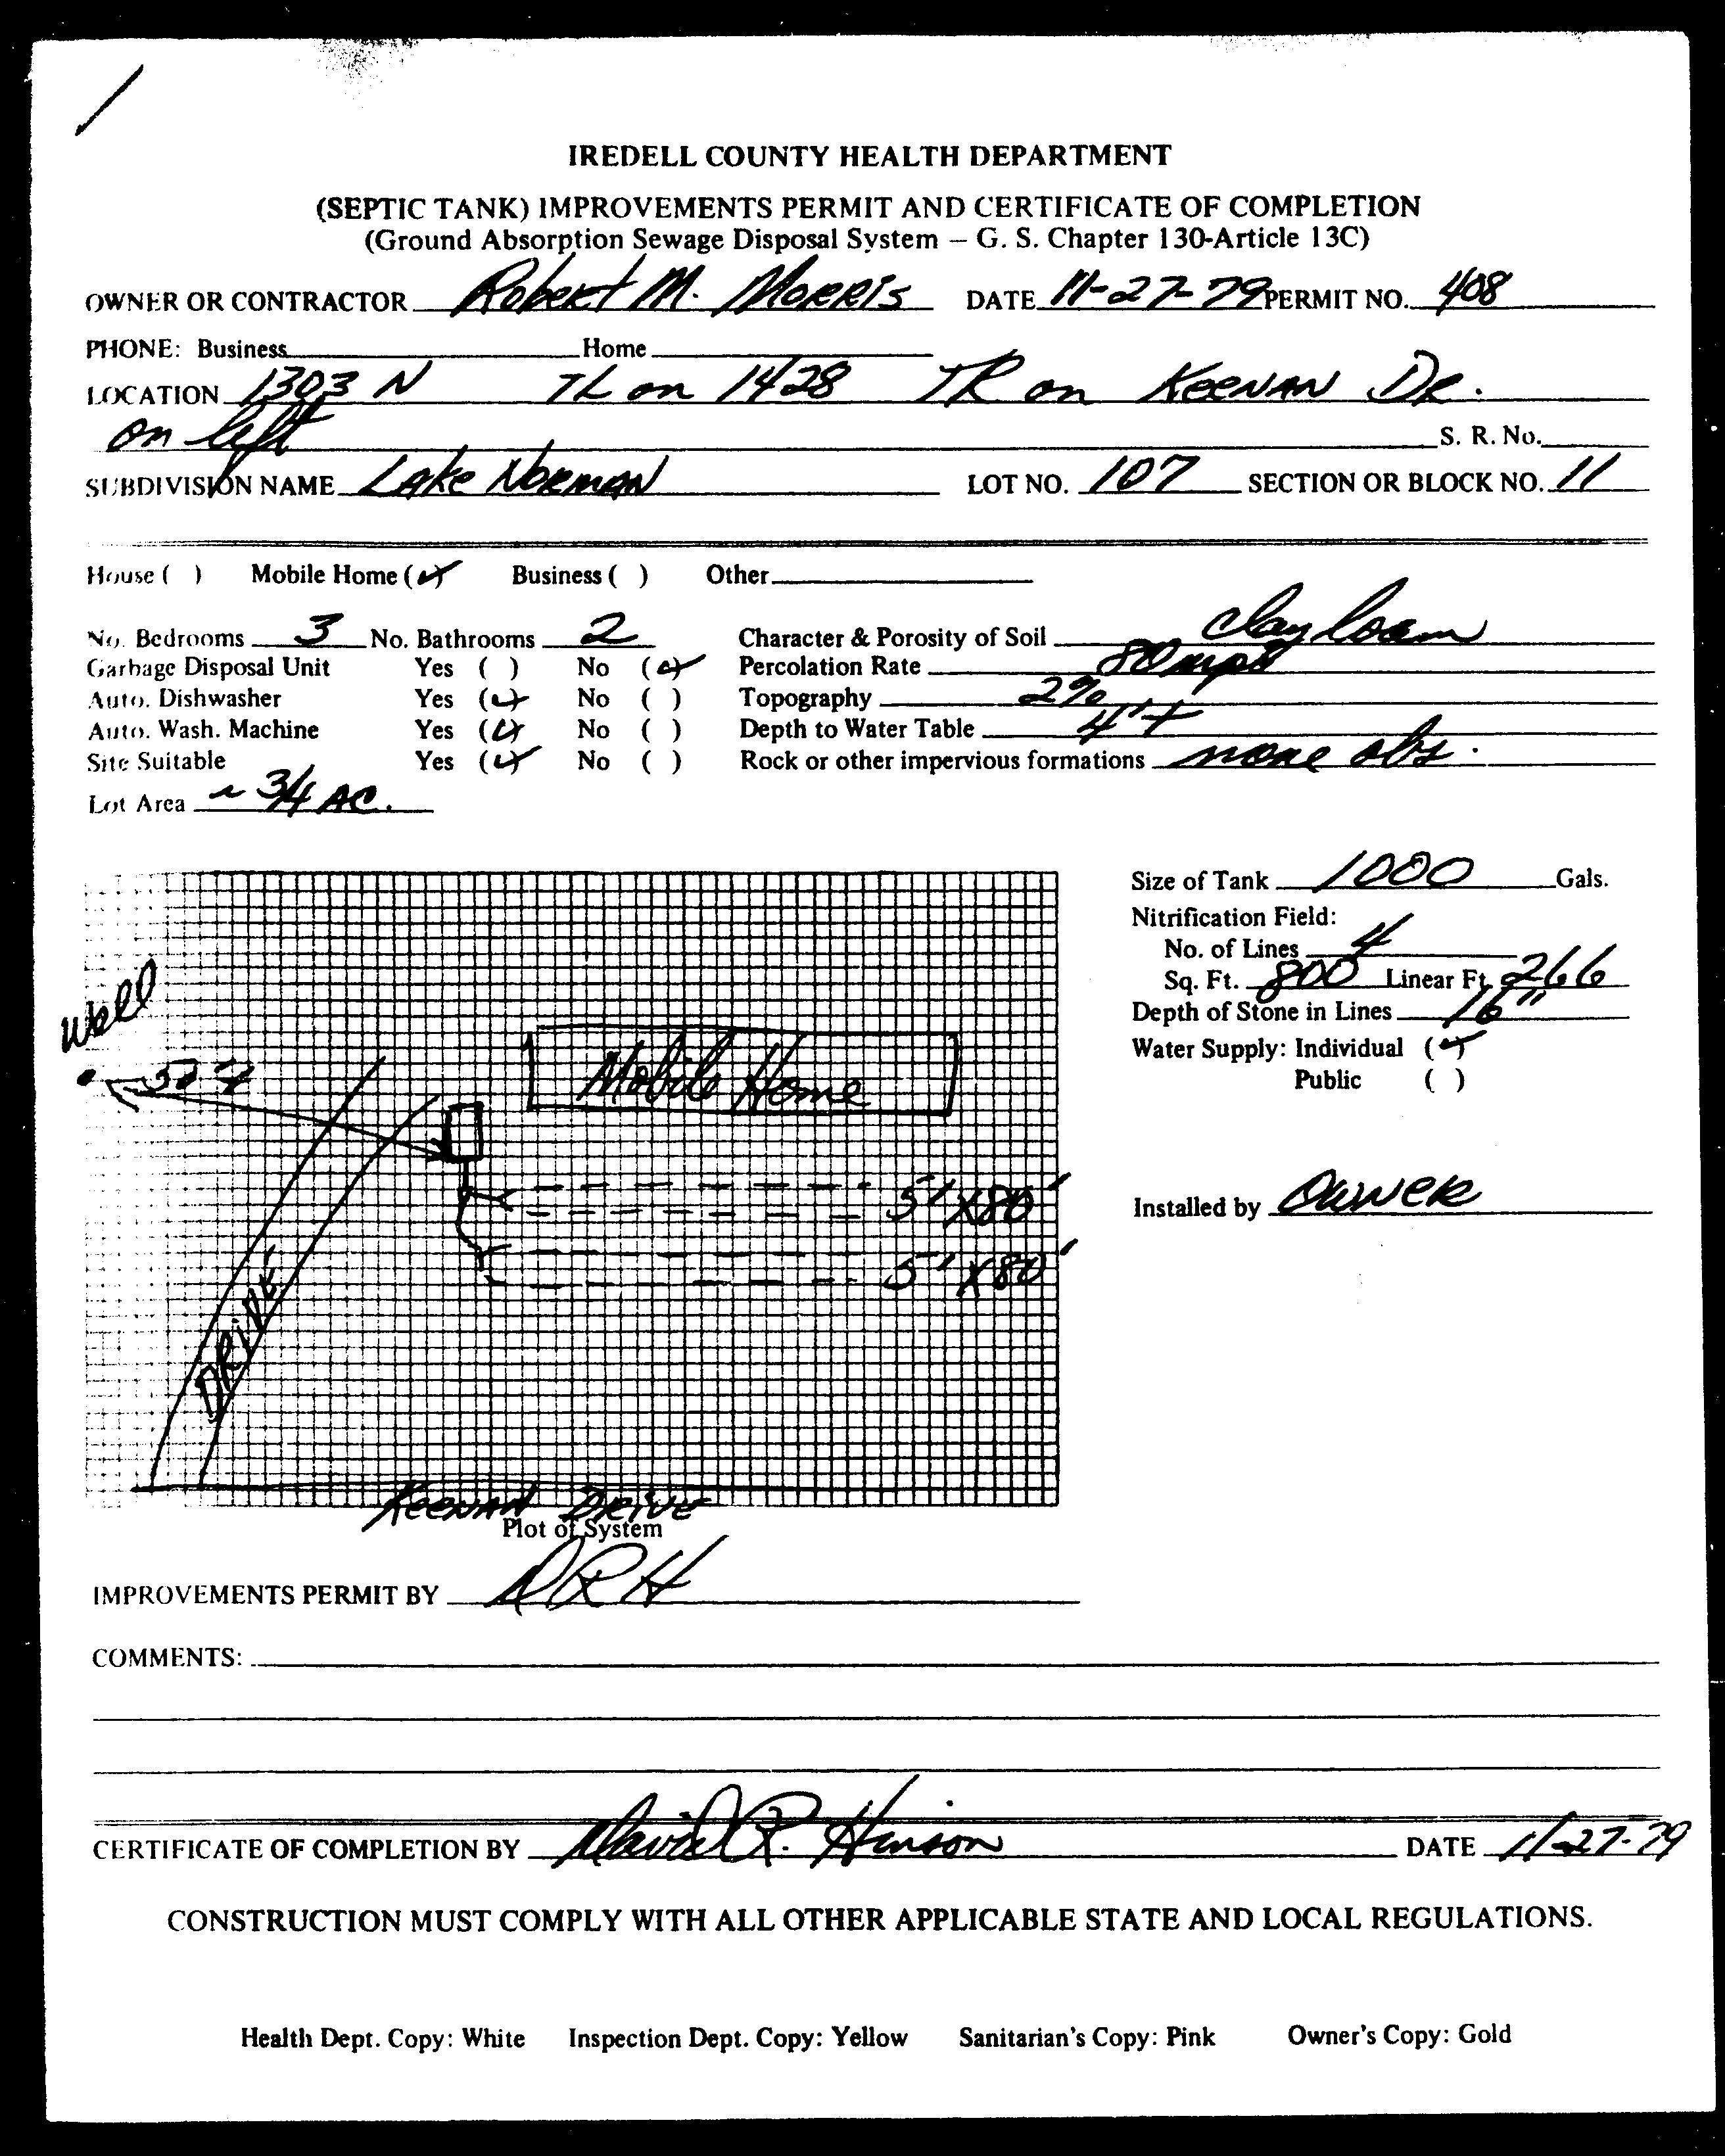 IREDELL COUNTY HEALTH DEPARTMENT
(SEPTIC TANK) IMPROVEMENTS PERMIT AND CERTIFICATE OF COMPLETION
(Ground Absorption Sewage Disposal System – G. S. Chapter 130-Article 13C)
OWNER OR CONTRACTOR Robert M. Morris DATE 11-27-79 PERMIT NO. 408
PHONE: Business Home
LOCATION 1303 N TL on 1428 TR on Keenan Dr.
on left S. R. No.
SUBDIVISION NAME Lake Norman LOT NO. 107 SECTION OR BLOCK NO. 11
House ( ) Mobile Home (✓) Business ( ) Other
No. Bedrooms 3 No. Bathrooms 2 Character & Porosity of Soil clay loam
Garbage Disposal Unit Yes ( ) No (✓) Percolation Rate 80 mph
Auto. Dishwasher Yes (✓) No ( ) Topography 2%
Auto. Wash. Machine Yes (✓) No ( ) Depth to Water Table 4'+
Site Suitable Yes (✓) No ( ) Rock or other impervious formations none obs.
Lot Area ~ 3/4 AC.
Size of Tank 1000 Gals.
Nitrification Field:
No. of Lines 4
Sq. Ft. 800 Linear Ft. 266
Depth of Stone in Lines 16"
Water Supply: Individual (✓)
Public ( )
Installed by Owner
Well
Mobile Home
5' X 80'
5' X 80'
DRIVE
KEENAN DRIVE
Plot of System
IMPROVEMENTS PERMIT BY DRH
COMMENTS:
CERTIFICATE OF COMPLETION BY David R. Hinson DATE 11-27-79
CONSTRUCTION MUST COMPLY WITH ALL OTHER APPLICABLE STATE AND LOCAL REGULATIONS.
Health Dept. Copy: White Inspection Dept. Copy: Yellow Sanitarian's Copy: Pink Owner's Copy: Gold